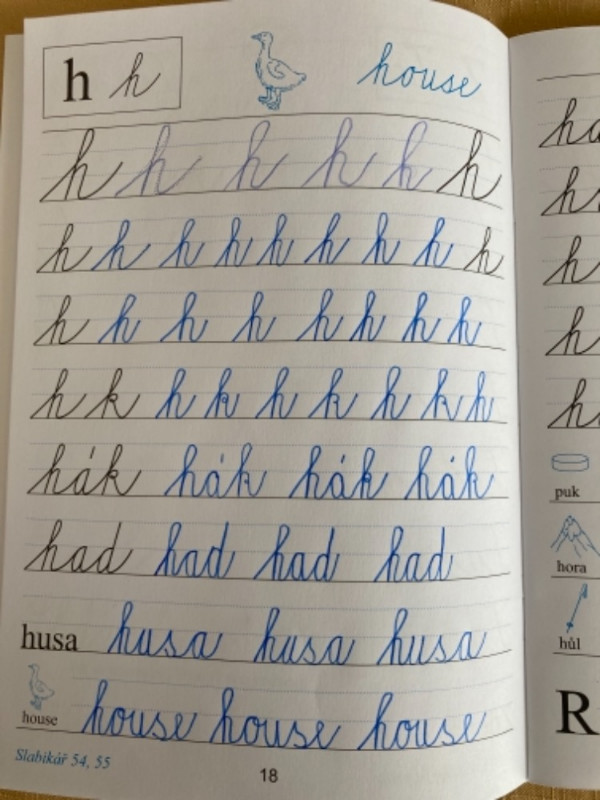 h h house
h h h h h h
h h h h h h h h h
h h h h h h h h
h k h k h k h k h
hák hák hák hák
had had had had
husa husa husa husa
house house house house
Slabikář 54, 55
18
puk
hora
hůl
R